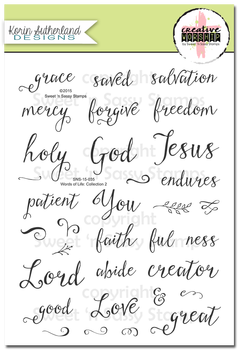 Korin Sutherland
DESIGNS
creative
WORSHIP
by Sweet 'n Sassy Stamps
grace saved salvation
©2015
Sweet 'n Sassy Stamps
mercy forgive freedom
holy God Jesus
SNS-15-056
Words of Life: Collection 2
endures
patient You
copyright
Sweet 'n Sassy Stamps
faith ful ness
Lord abide creator
copyright
good Love & great